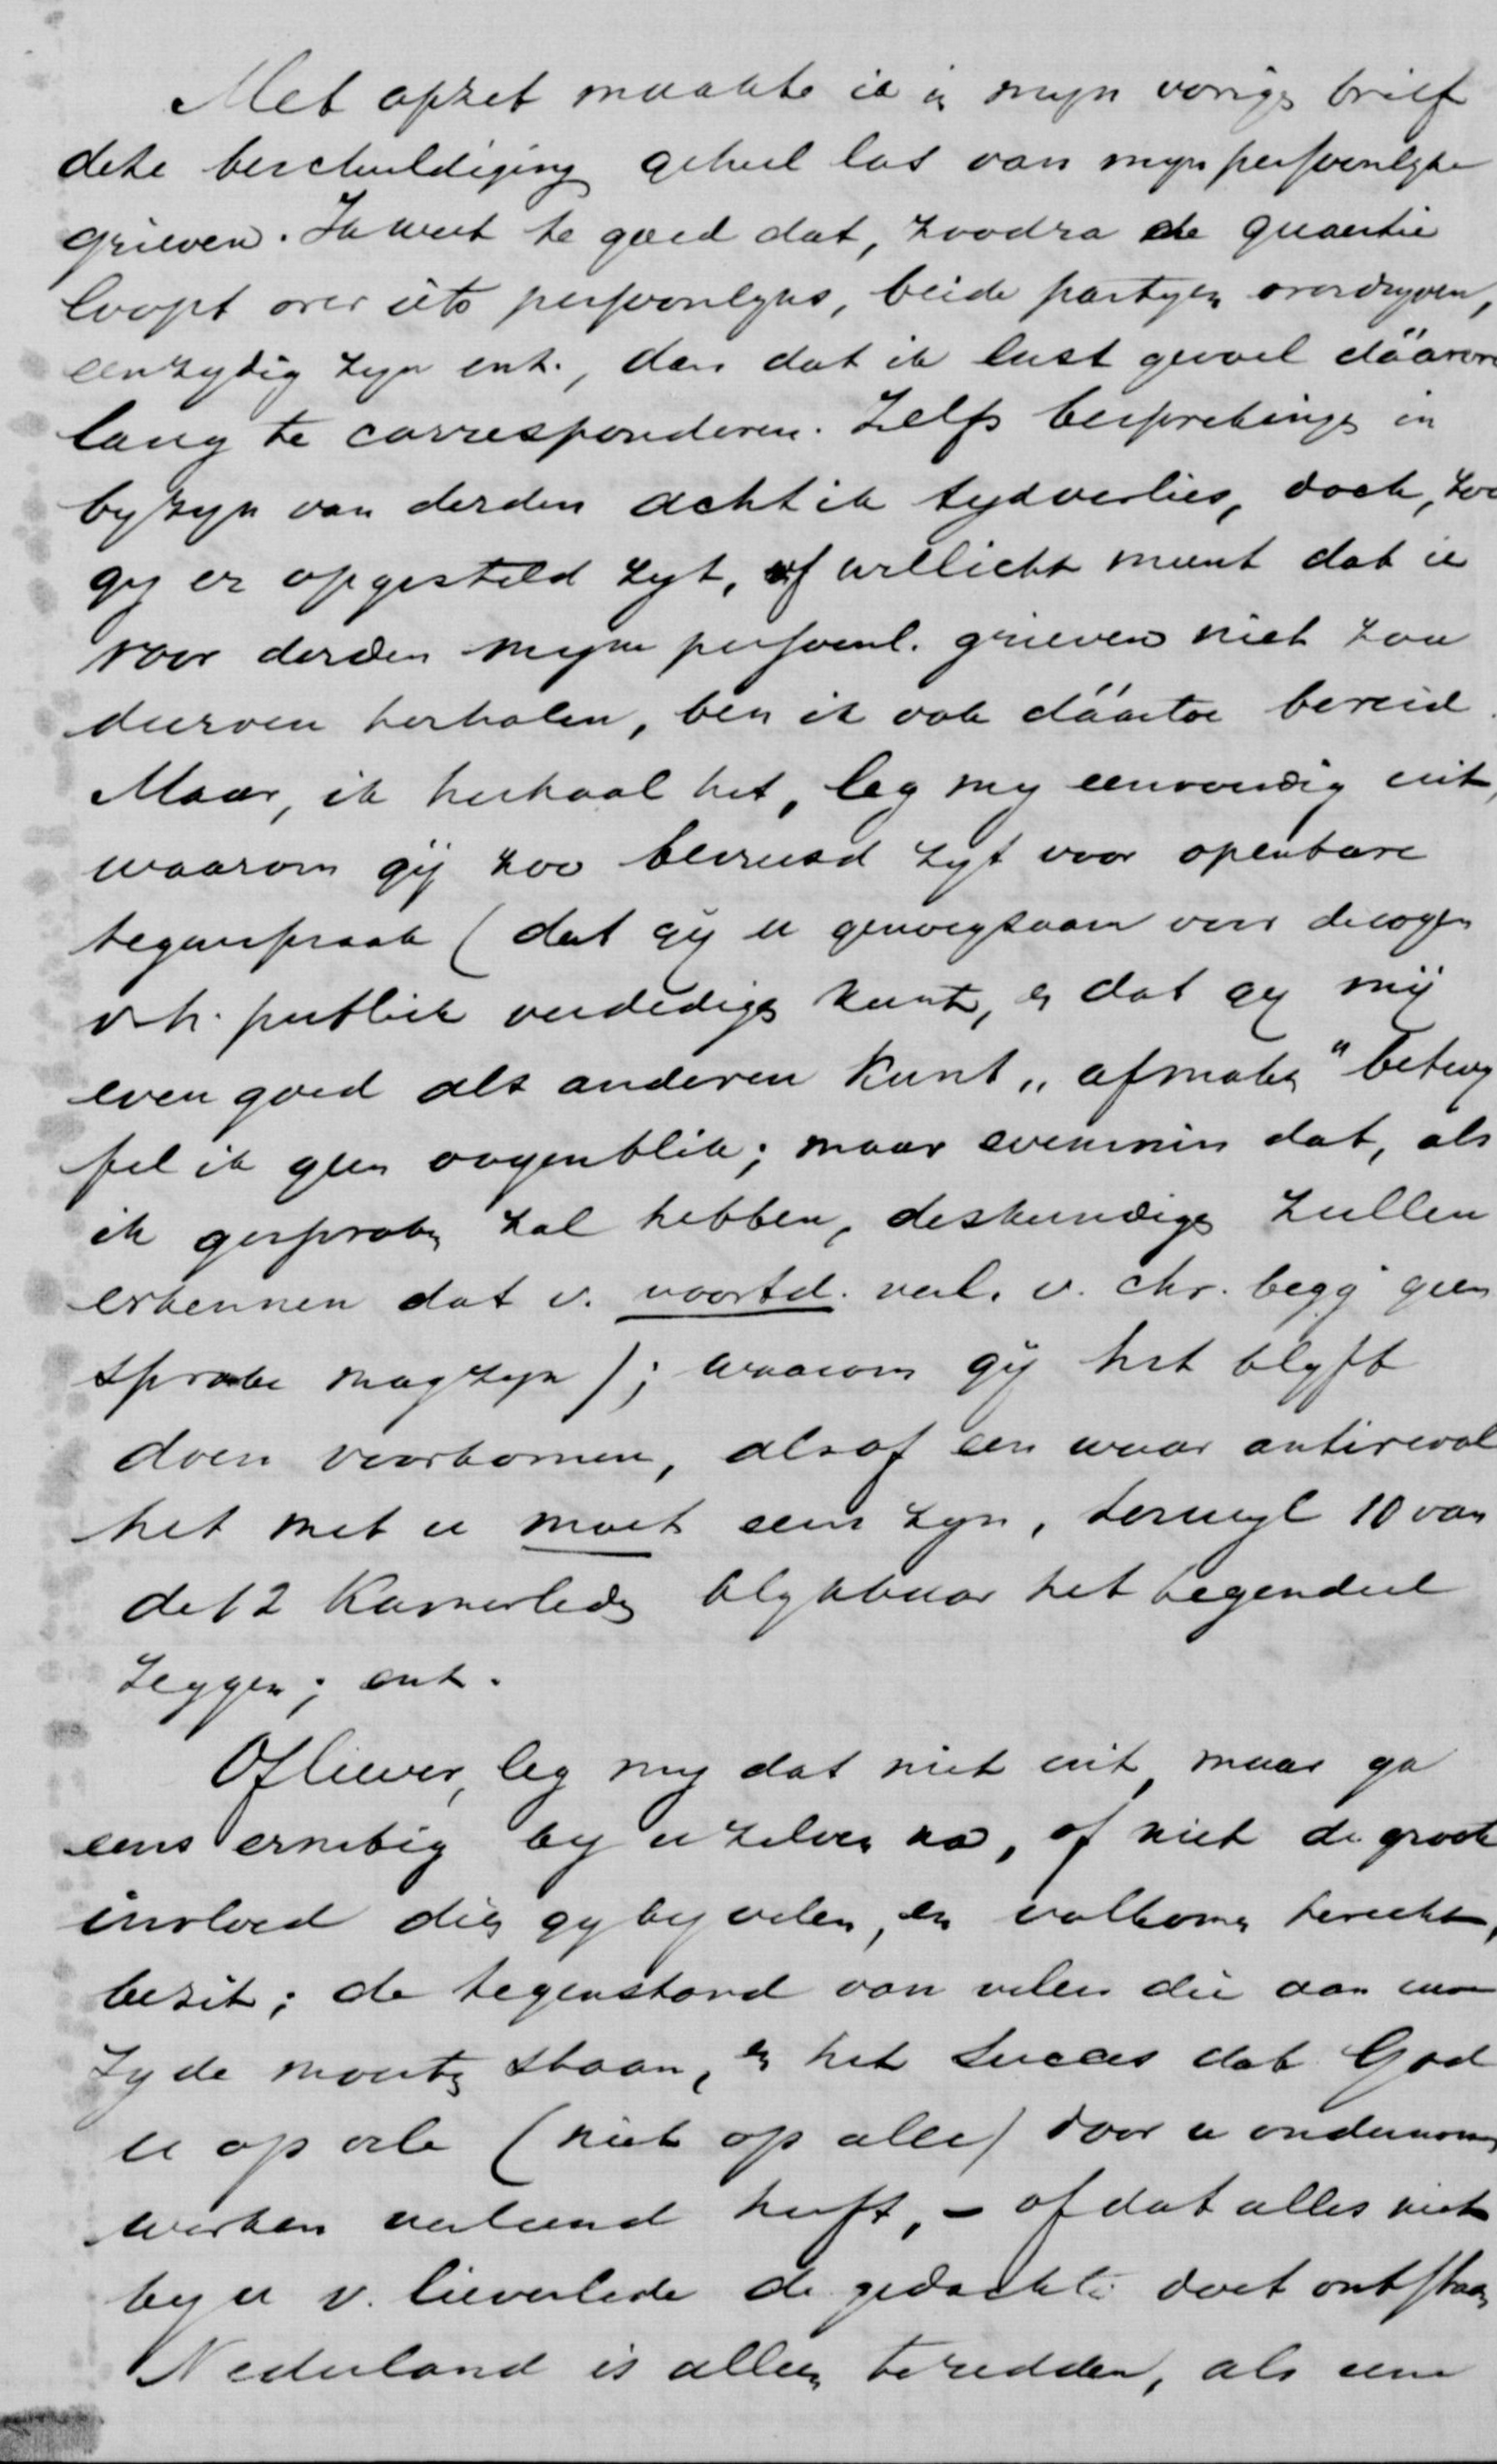 Met opzet maakte ik in mijn vorige brief
deze beschuldiging geheel los van mijn persoonlyke
grieven. Ik weet te goed dat, zoodra de quaestie
loopt over iets persoonlyks, beide partyen overdryven,
eenzydig zyn enz., dan dat ik lust gevoel dáárover
lang te corresponderen. Zelfs besprekingen in
byzyn van derden acht ik tydverlies, doch, zoo
gy er opgesteld zyt, of wellicht meent dat ik
voor derden myne persoonl. grieven niet zou
durven herhalen, ben ik ook dáártoe bereid.
Maar, ik herhaal het, leg my eenvoudig uit,
waarom gij zoo bevreesd zyt voor openbare
tegenspraak (dat gij u genoegzaam voor de oogen
v. h. publiek verdedigen kunt, en dat gy mij
even goed als anderen kunt „afmaken" betwy
fel ik geen oogenblik; maar evenmin dat, als
ik gesproken zal hebben, deskundigen zullen
erkennen dat v. voortd. verl. v. chr. begg geen
sprake mag zyn); waarom gij het blyft
doen voorkomen, alsof een waar antirevol
het met u moet eens zyn, terwyl 10 van
de 12 Kamerleden blykbaar het tegendeel
zeggen; enz.
Of liever, leg my dat niet uit, maar ga
eens ernstig by u zelven na, of niet de groote
invloed dien gy by velen, en volkomen terecht,
bezit; de tegenstand van velen die aan uwe
zyde moesten staan, en het succes dat God
u op vele (niet op alle) door u ondernomen
werken verleend heeft, – of dat alles niet
by u v. lieverlede de gedachte doet ontstaan
Nederland is alleen te redden, als een